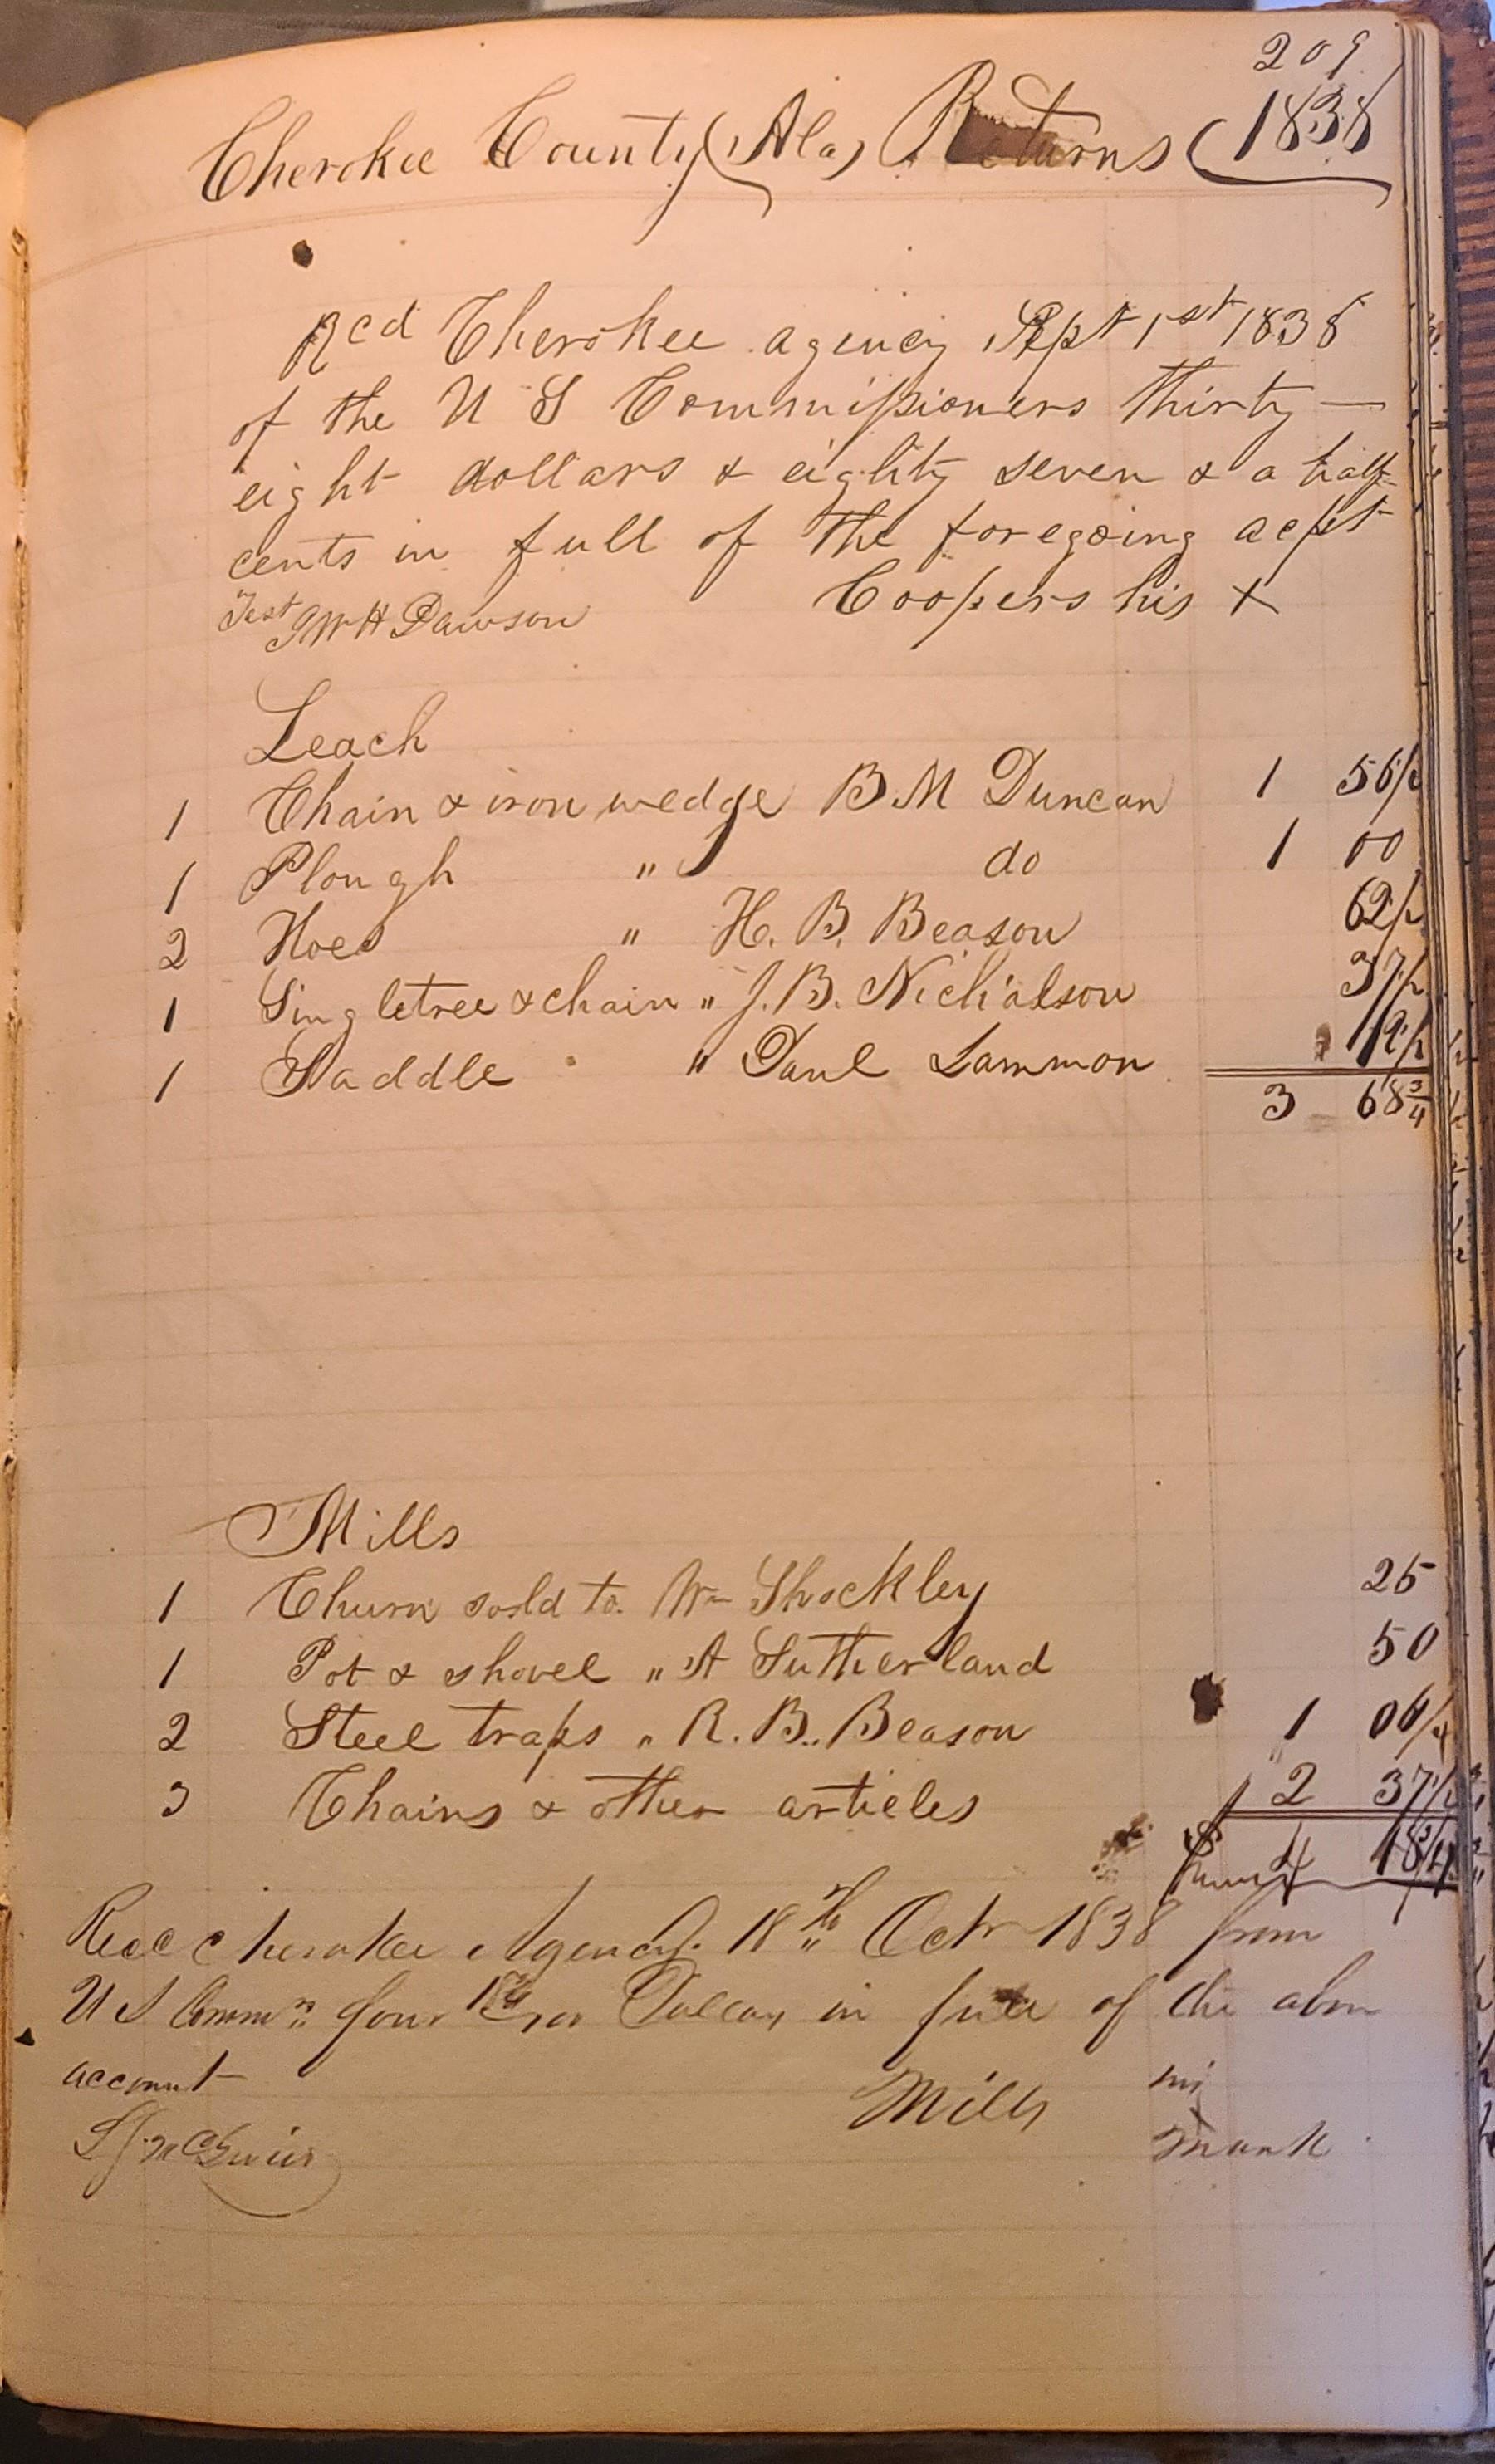 209
Cherokee County (Ala) Returns 1838
Rcd Cherokee agency Sept 1st 1838
of the U S Commissioners thirty —
eight dollars & eighty seven & a half
cents in full of the foregoing acpt
Test J W H Dawson Coopers his X
Leach
1 Chain & iron wedge B M Duncan 1 56/2
1 Plough " do 1 00
2 Hoes " H. B. Beason 62/2
1 Singletree & chain " J. B. Nicholson 37/2
1 Saddle " Danl Lammon 12/2
3 68 3/4
Mills
1 Churn sold to Wm Shockley 25
1 Pot & shovel " A Sutherland 50
2 Steel traps " R. B. Beason 1 06/4
3 Chains & other articles 2 37/2
$ 4 18 3/4
Recd Cherokee Agency 18th Octr 1838 from
U S Commrs four Dollars in full of the above
account Mills his
mark